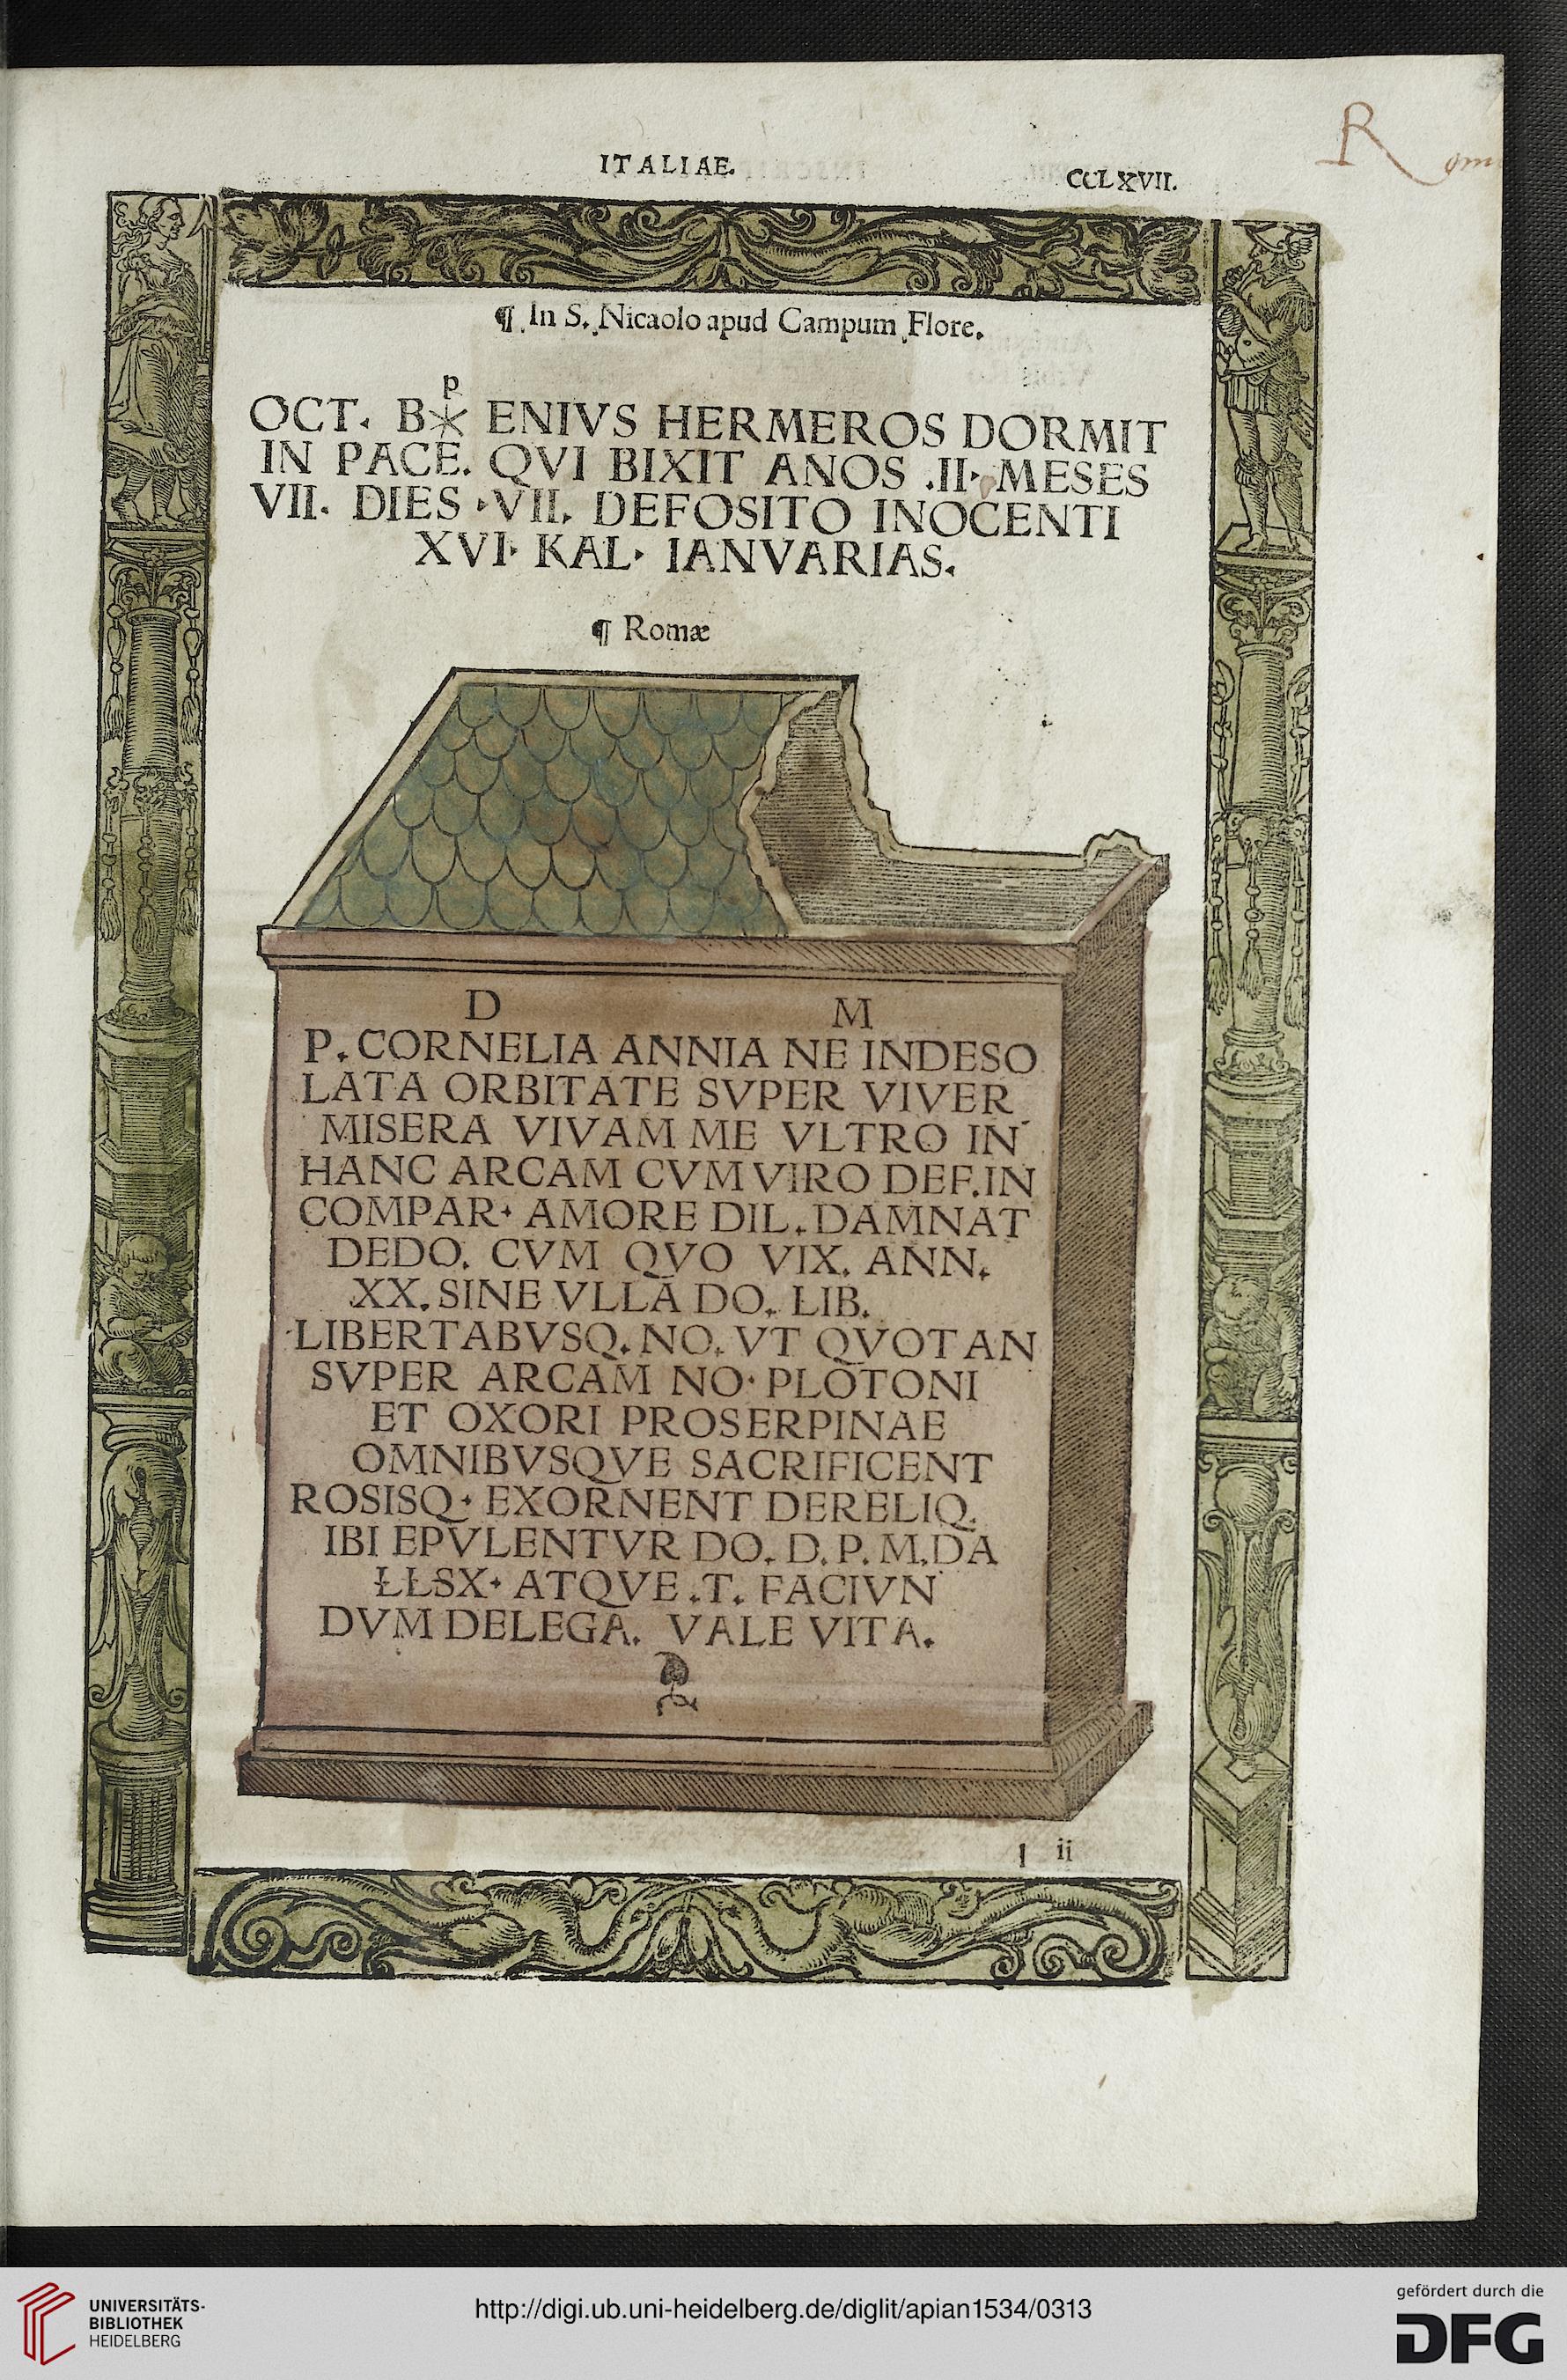 ITALIAE.
CCLXVII.
Rom
¶ In S. Nicaolo apud Campum Flore.
OCT. B⳩ ENIVS HERMEROS DORMIT
IN PACE. QVI BIXIT ANOS .II. MESES
VII. DIES .VII. DEFOSITO INOCENTI
XVI. KAL. IANVARIAS.
¶ Romæ
D M
P. CORNELIA ANNIA NE INDESO
LATA ORBITATE SVPER VIVER
MISERA VIVAM ME VLTRO IN
HANC ARCAM CVM VIRO DEF. IN
COMPAR. AMORE DIL. DAMNAT
DEDO. CVM QVO VIX. ANN.
XX. SINE VLLA DO. LIB.
LIBERTABVSQ. NO. VT QVOTAN
SVPER ARCAM NO. PLOTONI
ET OXORI PROSERPINAE
OMNIBVSQVE SACRIFICENT
ROSISQ. EXORNENT DERELIQ.
IBI EPVLENTVR DO. D. P. M. DA
ⱠⱠSX. ATQVE .T. FACIVN
DVM DELEGA. VALE VITA.
l ii
UNIVERSITÄTS-
BIBLIOTHEK
HEIDELBERG
http://digi.ub.uni-heidelberg.de/diglit/apian1534/0313
gefördert durch die
DFG